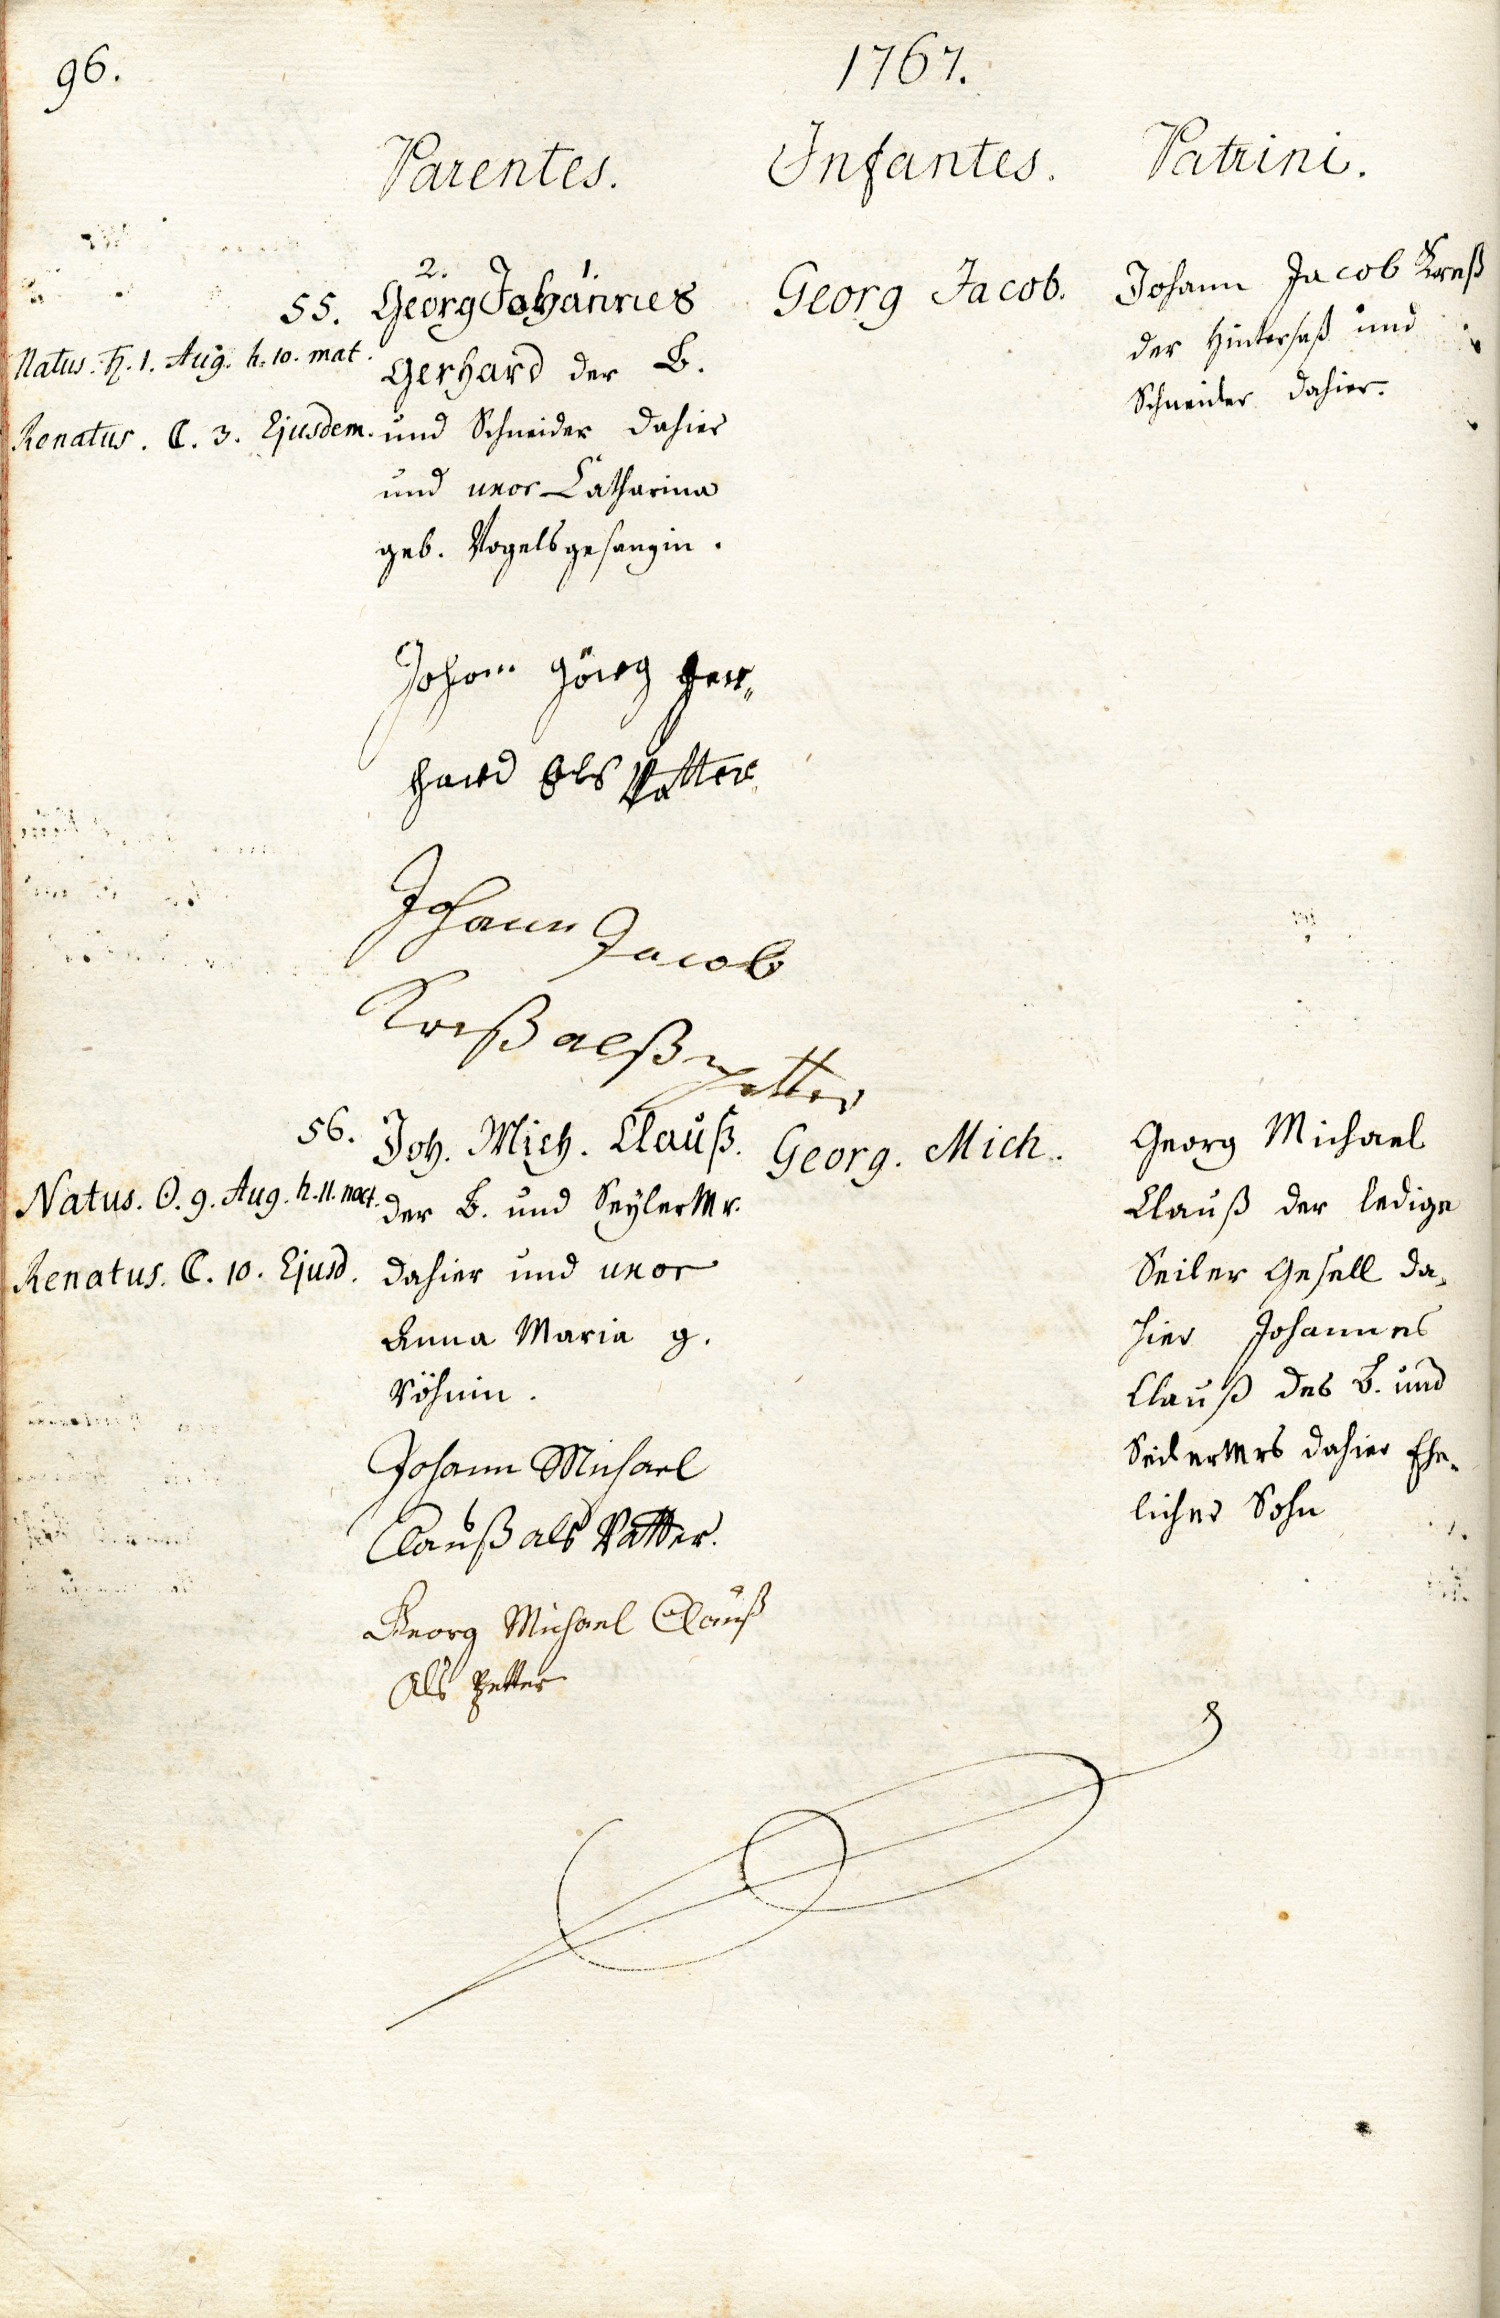 96.
1767.
Parentes.
Infantes.
Patrini.
55.
Natus. ♄. 1. Aug. h. 10. mat.
Renatus. ☾. 3. Ejusdem.
2. 1.
Georg Johannes
Gerhard der B.
und Schneider dahier
und uxor Catharina
geb. Vogelsgesangin.
Johann Görg Ger„
hard Als Vatter
Johann Jacob
Kreß alß petter
Georg Jacob.
Johann Jacob Kreß
der Hintersaß und
Schneider dahier.
56.
Natus. ☉. 9. Aug. h. 11. noct.
Renatus. ☾. 10. Ejusd.
Joh. Mich. Clauß.
der B. und Seyler Mr.
dahier und uxor
Anna Maria g.
Röhnin.
Johann Michael
Clauß als Vatter.
Georg Michael Clauß
Als Petter
Georg. Mich.
Georg Michael
Clauß der ledige
Seiler Gesell da„
hier Johannes
Clauß des B. und
Seiler Mrs dahier Ehe„
licher Sohn